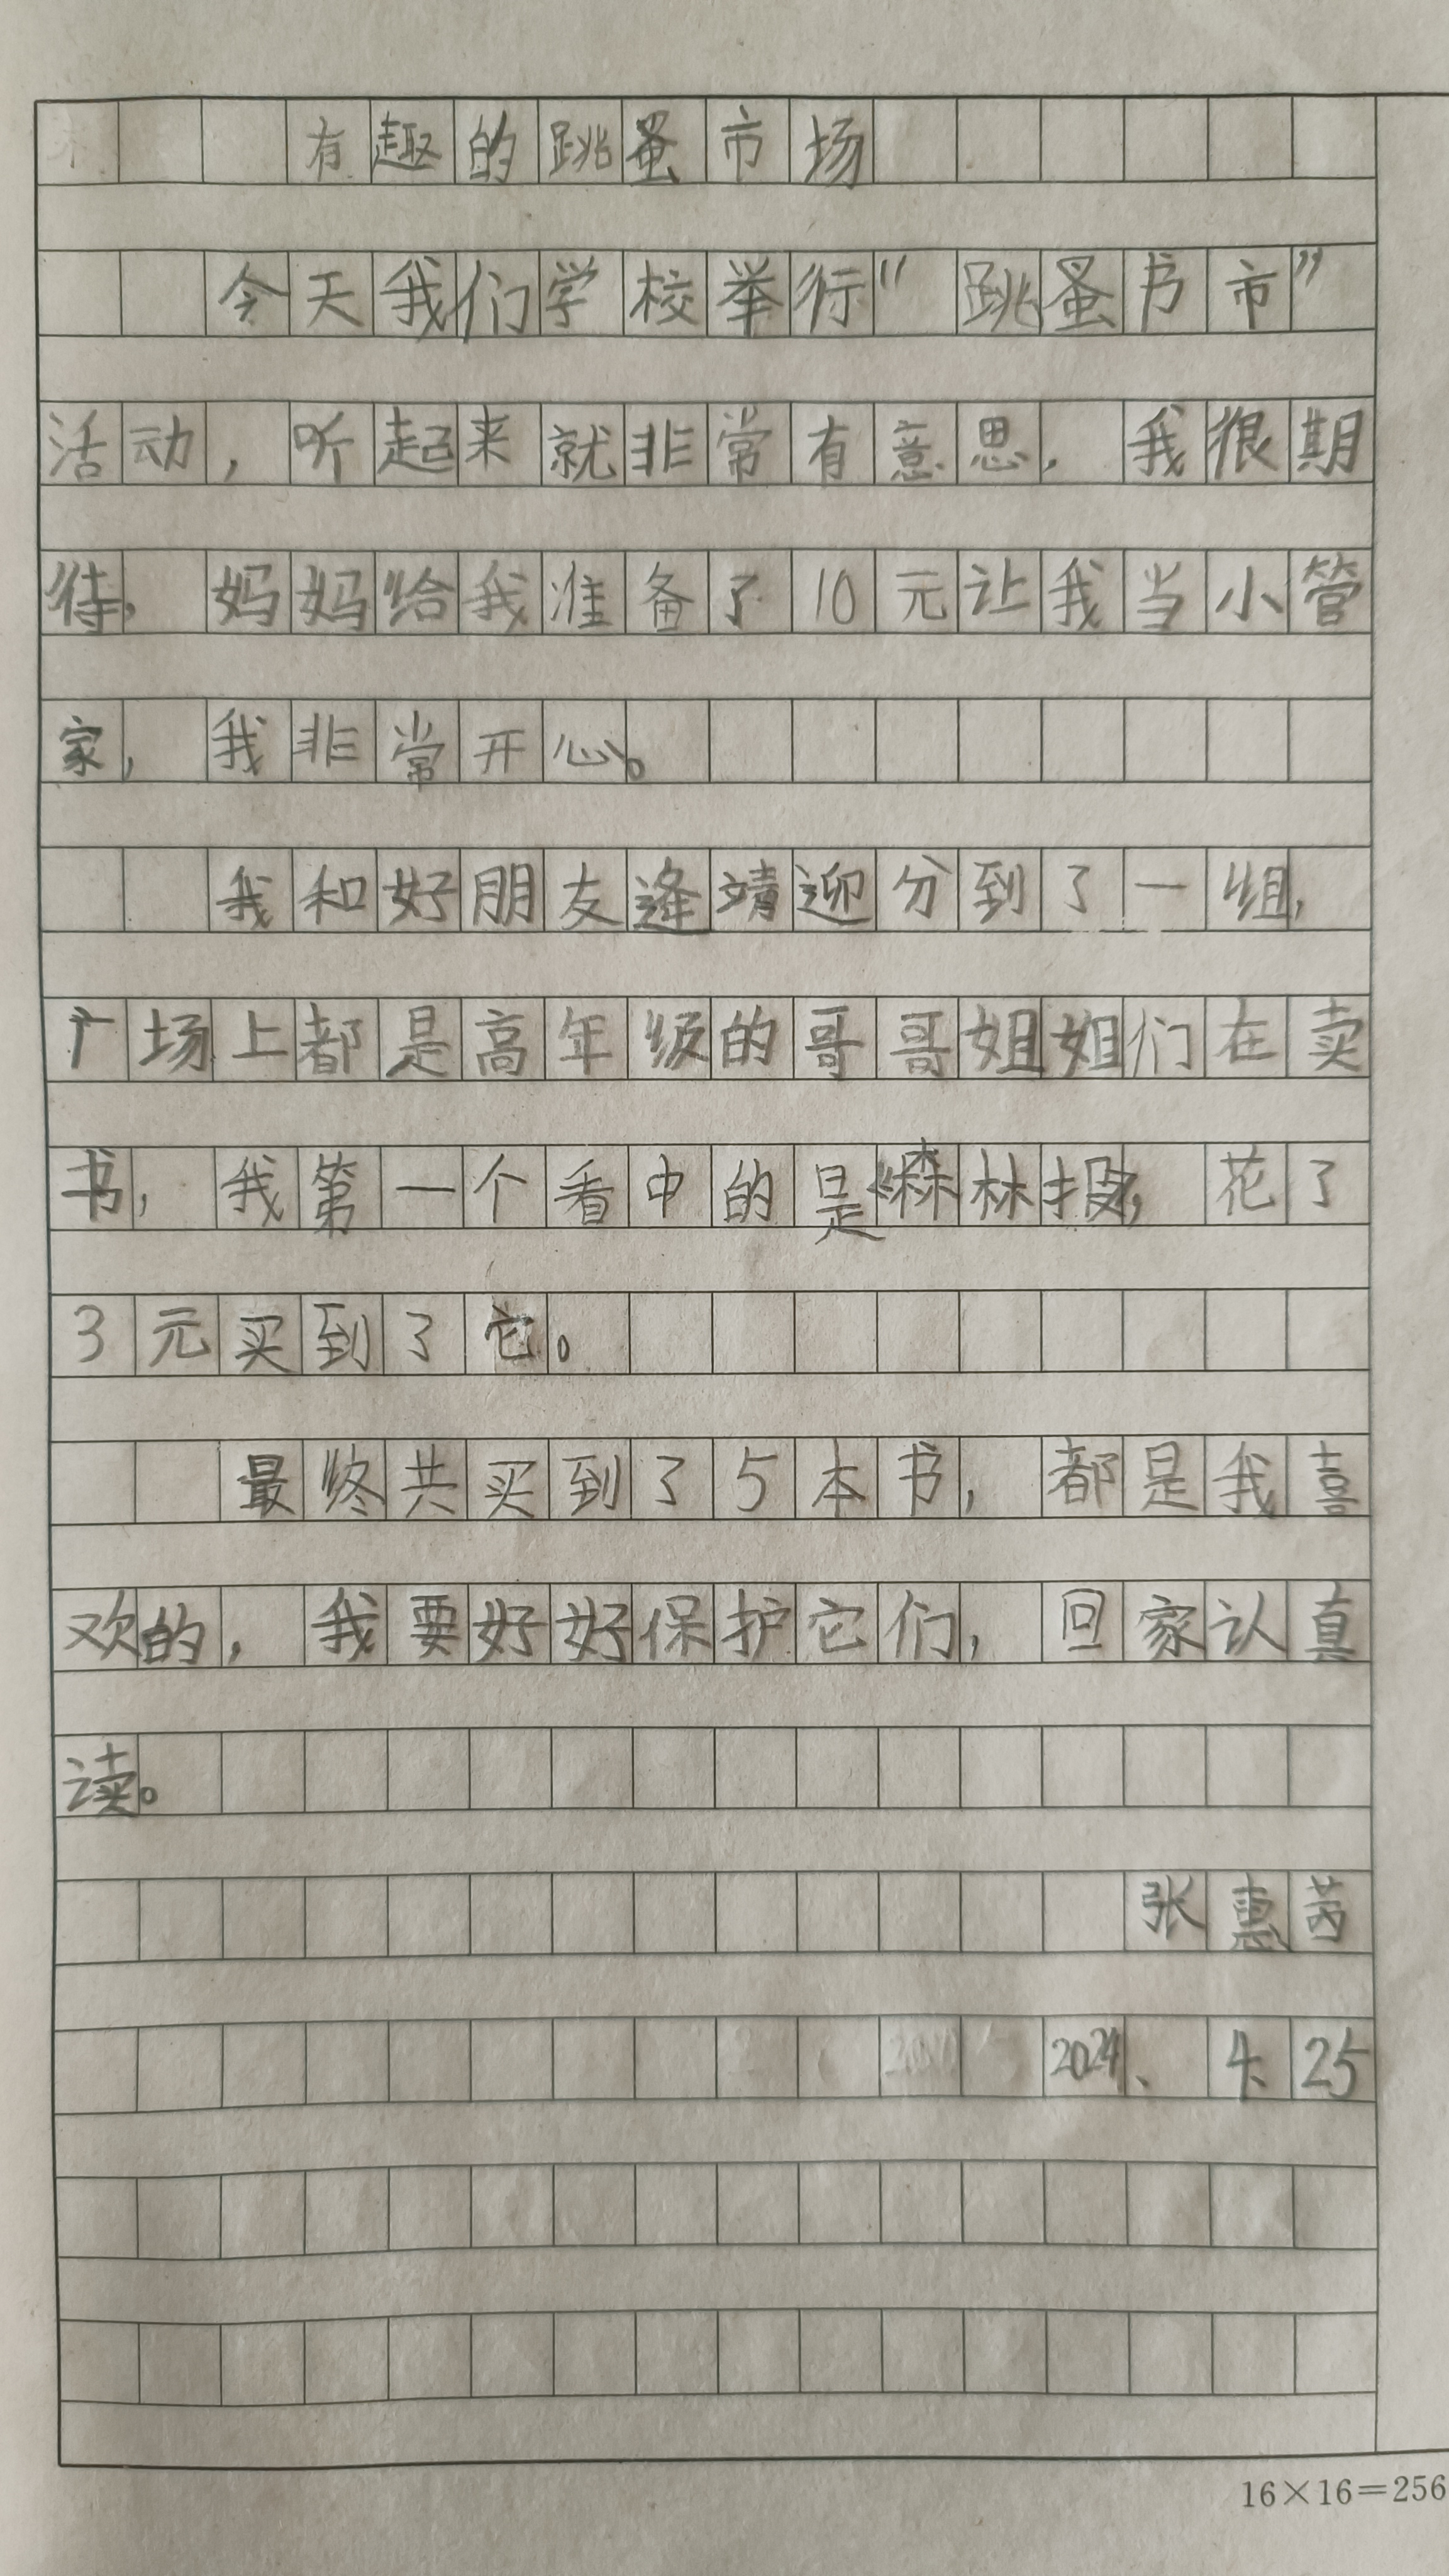 有趣的跳蚤市场
今天我们学校举行“跳蚤书市”
活动，听起来就非常有意思，我很期
待，妈妈给我准备了10元让我当小管
家，我非常开心。
我和好朋友逄靖迎分到了一组，
广场上都是高年级的哥哥姐姐们在卖
书，我第一个看中的是《森林报》，花了
3元买到了它。
最终共买到了5本书，都是我喜
欢的，我要好好保护它们，回家认真
读。
张惠茜
2024、4、25
16×16=256